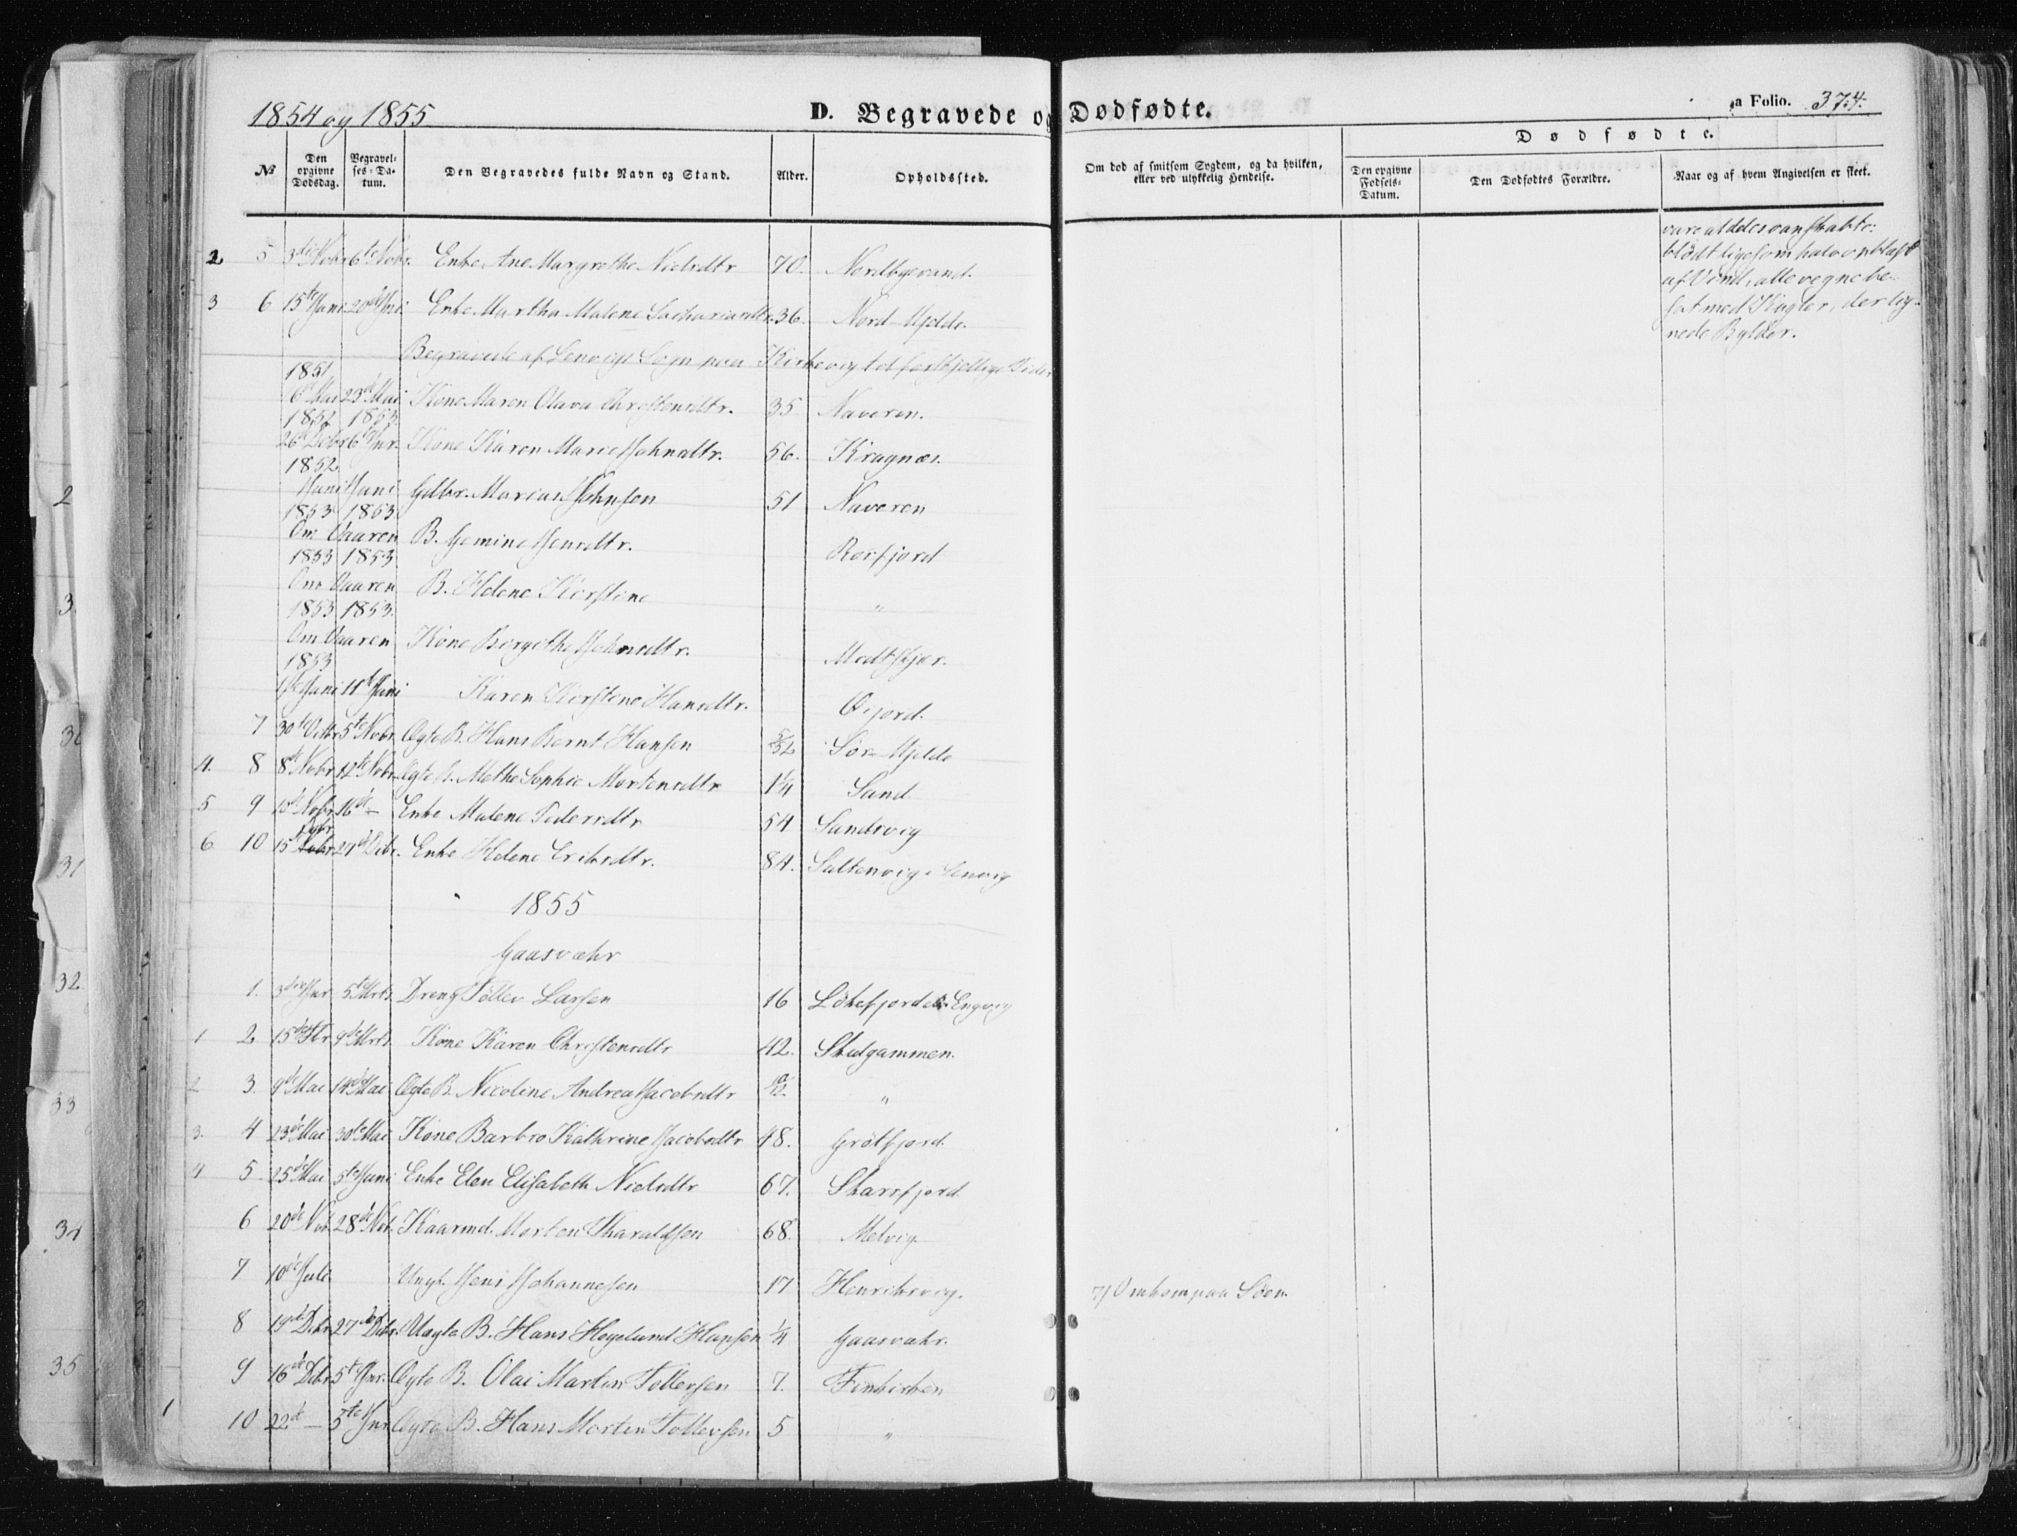 1854 og 1855
D. Begravede og Dødfødte.
a Folio. 374.
№
Den opgivne Dødsdag.
Begravelses-Datum.
Den Begravedes fulde Navn og Stand.
Alder.
Opholdssted.
Om død af smitsom Sygdom, og da hvilken, eller ved ulykkelig Hendelse.
Dødfødte.
Den opgivne Fødsels-Datum.
Den Dødfødtes Forældre.
Naar og af hvem Angivelsen er skeet.
vare aldeles vanskabte:
blødt ligesom halv opblæst
af Vind, alle vegne be-
sat med Kugler, der lig-
nede Bylder.
2 5 3die Nobr 6te Nobr. Enke Ane Margrethe Nielsdtr 70. Nordbyevand.
3 6 15te Juni 20de Juni Enke Martha Malene Zachariasdtr 36. Nord Mjelde.
Begravede af Lenvigs Sogn paa Kirkevig til forskjellige Tider
1851
6te Mai 23de Mai Kone Maren Olava Christensdtr. 35 Naveren.
1852 1853
26de Debr 6te Jnr. Kone Karen Marie Johnsdtr. 56. Kragnæs.
1852
Juni Juni Gdbr. Marius Johnsen 51 Naveren
1853 1853
Om Vaaren B. Gemine Jensdtr. Rossfjord
1853 1853
Om Vaaren B. Helene Kirstine "
1853 1853.
Om Vaaren Kone Bergethe Johnsdtr. Medtfjær.
1853
Juni 11te Juni Karen Kirstine Hansdtr. Øifjord.
7 30te Octbr 5te Nobr. Ægte B. Hans Bernt Hansen 5/52 Sør-Mjelde
4. 8 8de Nobr 12te Nobr. Ægte B. Methe Sophie Mortensdtr 1¼ Sand.
5 9 10de Nobr 16de — Enke Malene Pedersdtr 54 Sandvig
6 10 15de Debr. 29de Debr. Enke Helene Eriksdtr. 84. Saltenvig i Lenvig
1855
Gaasvær
1. 3die Jnr 5te Mrts Dreng Tollev Larsen 16 Løkefjorden Engvig
1 2 15de Fbr. 9de Mrts Kone Karen Christensdtr 42. Skulgammen.
2 3. 9de Mai 14de Mai Ægte B. Nicoline Andrea Jacobsdtr "
3. 4 23de Mai 30te Mai Kone Barbro Kathrine Jacobsdtr 48. Grøtfjord.
4 5. 25de Mai 5te Juni Enke Elen Elisabeth Nielsdtr 67. Skarsfjord.
6 20de Nov. 28de Nov. Kaarmd. Morten Tharaldsen 68. Melvig.
7 10de Juli Ungk. Jens Johannesen 17 Henrikvig. 7) Omkom paa Søen.
8 19de Debr. 27de Debr. Uægte B. Hans Hegelund Hansen ¼ Gaasvær.
9 16de Debr. 5te Jnr. Ægte B. Olai Martin Tollevsen 7. Finkirken
10 22de — 5te Jnr. Ægte B. Hans Morten Tollevsen 5 "